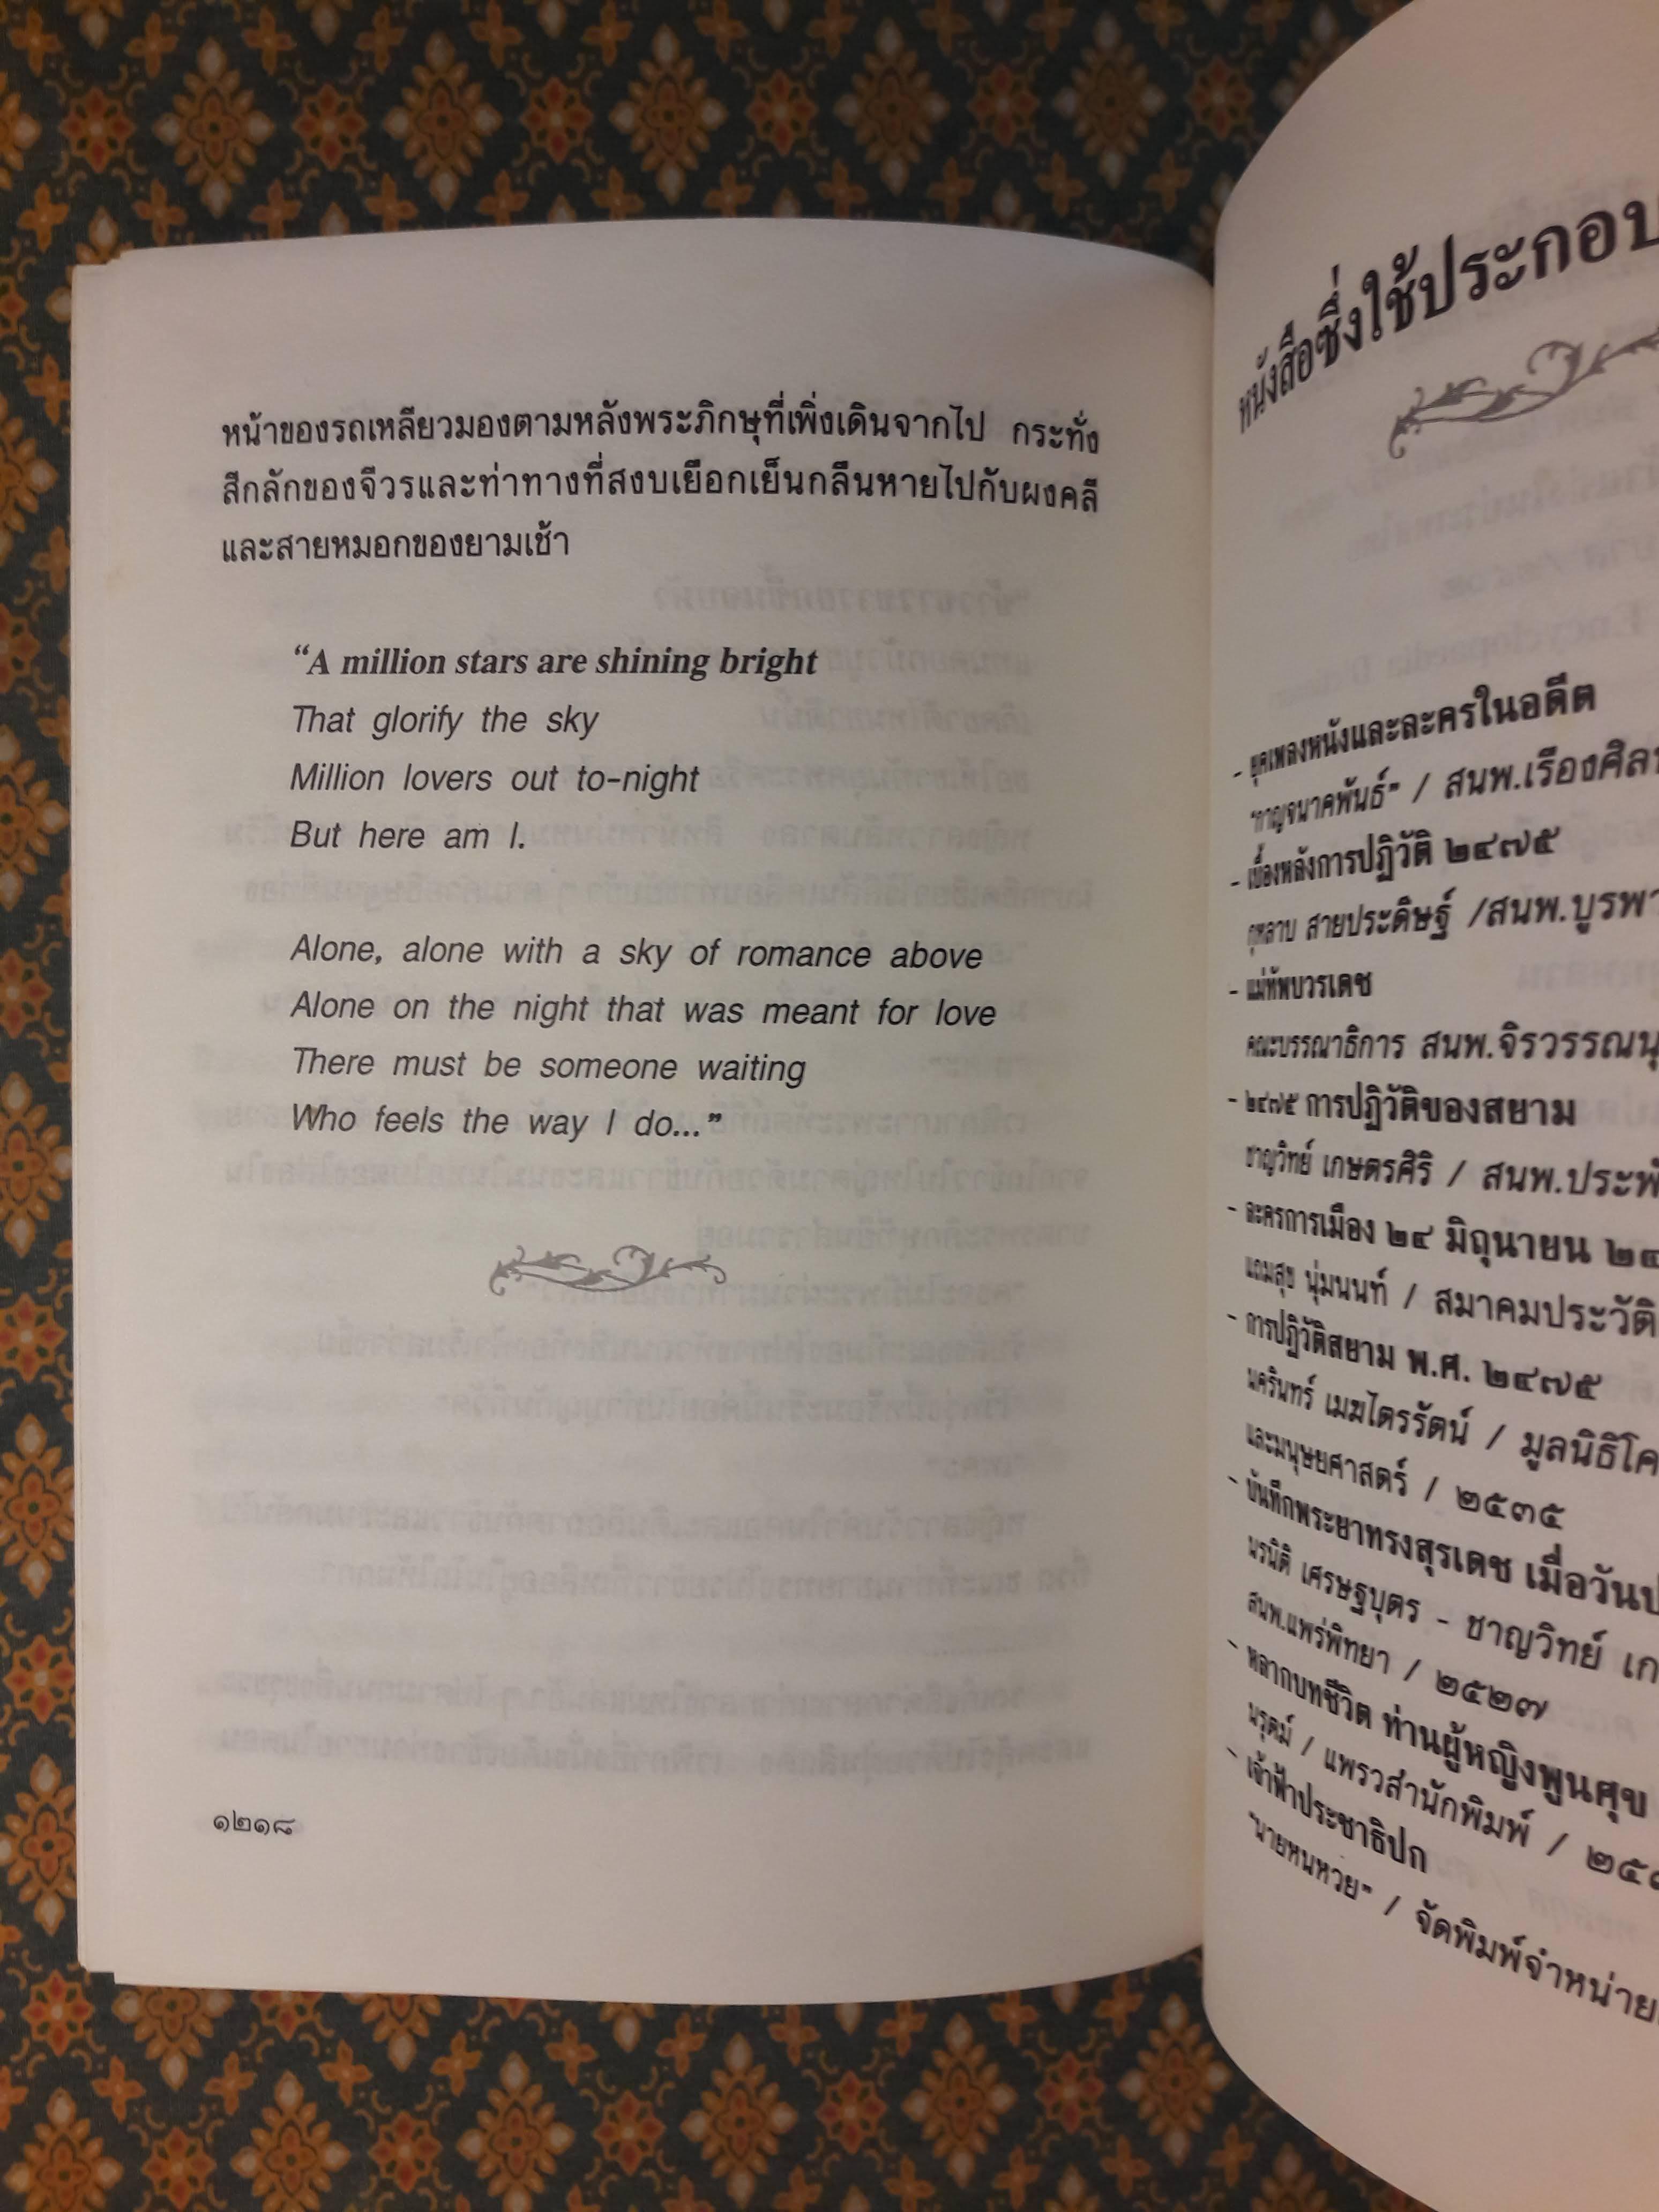 หน้าของรถเหลียวมองตามหลังพระภิกษุที่เพิ่งเดินจากไป กระทั่ง
สีกลักของจีวรและท่าทางที่สงบเยือกเย็นกลืนหายไปกับผงคลี
และสายหมอกของยามเช้า
“A million stars are shining bright
That glorify the sky
Million lovers out to-night
But here am I.
Alone, alone with a sky of romance above
Alone on the night that was meant for love
There must be someone waiting
Who feels the way I do...”
๑๒๑๘
หนังสือซึ่งใช้ประกอบ
- ยุคเพลงหนังและละครในอดีต
"กาญจนาคพันธ์" / สนพ.เรืองศิลป
- เบื้องหลังการปฏิวัติ ๒๔๗๕
กุหลาบ สายประดิษฐ์ /สนพ.บูรพา
- แม่ทัพบวรเดช
คณะบรรณาธิการ สนพ.จิรวรรณนุ
- ๒๔๗๕ การปฏิวัติของสยาม
ชาญวิทย์ เกษตรศิริ / สนพ.ประพั
- ละครการเมือง ๒๔ มิถุนายน ๒๔
แถมสุข นุ่มนนท์ / สมาคมประวัติ
- การปฏิวัติสยาม พ.ศ. ๒๔๗๕
นครินทร์ เมฆไตรรัตน์ / มูลนิธิโค
และมนุษยศาสตร์ / ๒๕๓๕
- บันทึกพระยาทรงสุรเดช เมื่อวันป
นรนิติ เศรษฐบุตร - ชาญวิทย์ เก
สนพ.แพร่พิทยา / ๒๕๒๗
- หลากบทชีวิต ท่านผู้หญิงพูนศุข
นรุตม์ / แพรวสำนักพิมพ์ / ๒๕
- เจ้าฟ้าประชาธิปก
"นายหนหวย" / จัดพิมพ์จำหน่าย